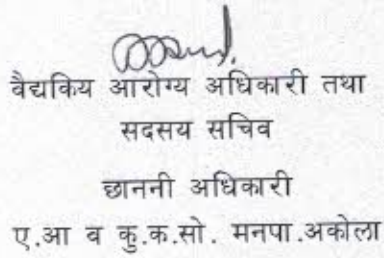 वैद्यकिय आरोग्य अधिकारी तथा
सदसय सचिव
छाननी अधिकारी
ए.आ व कु.क.सो. मनपा.अकोला